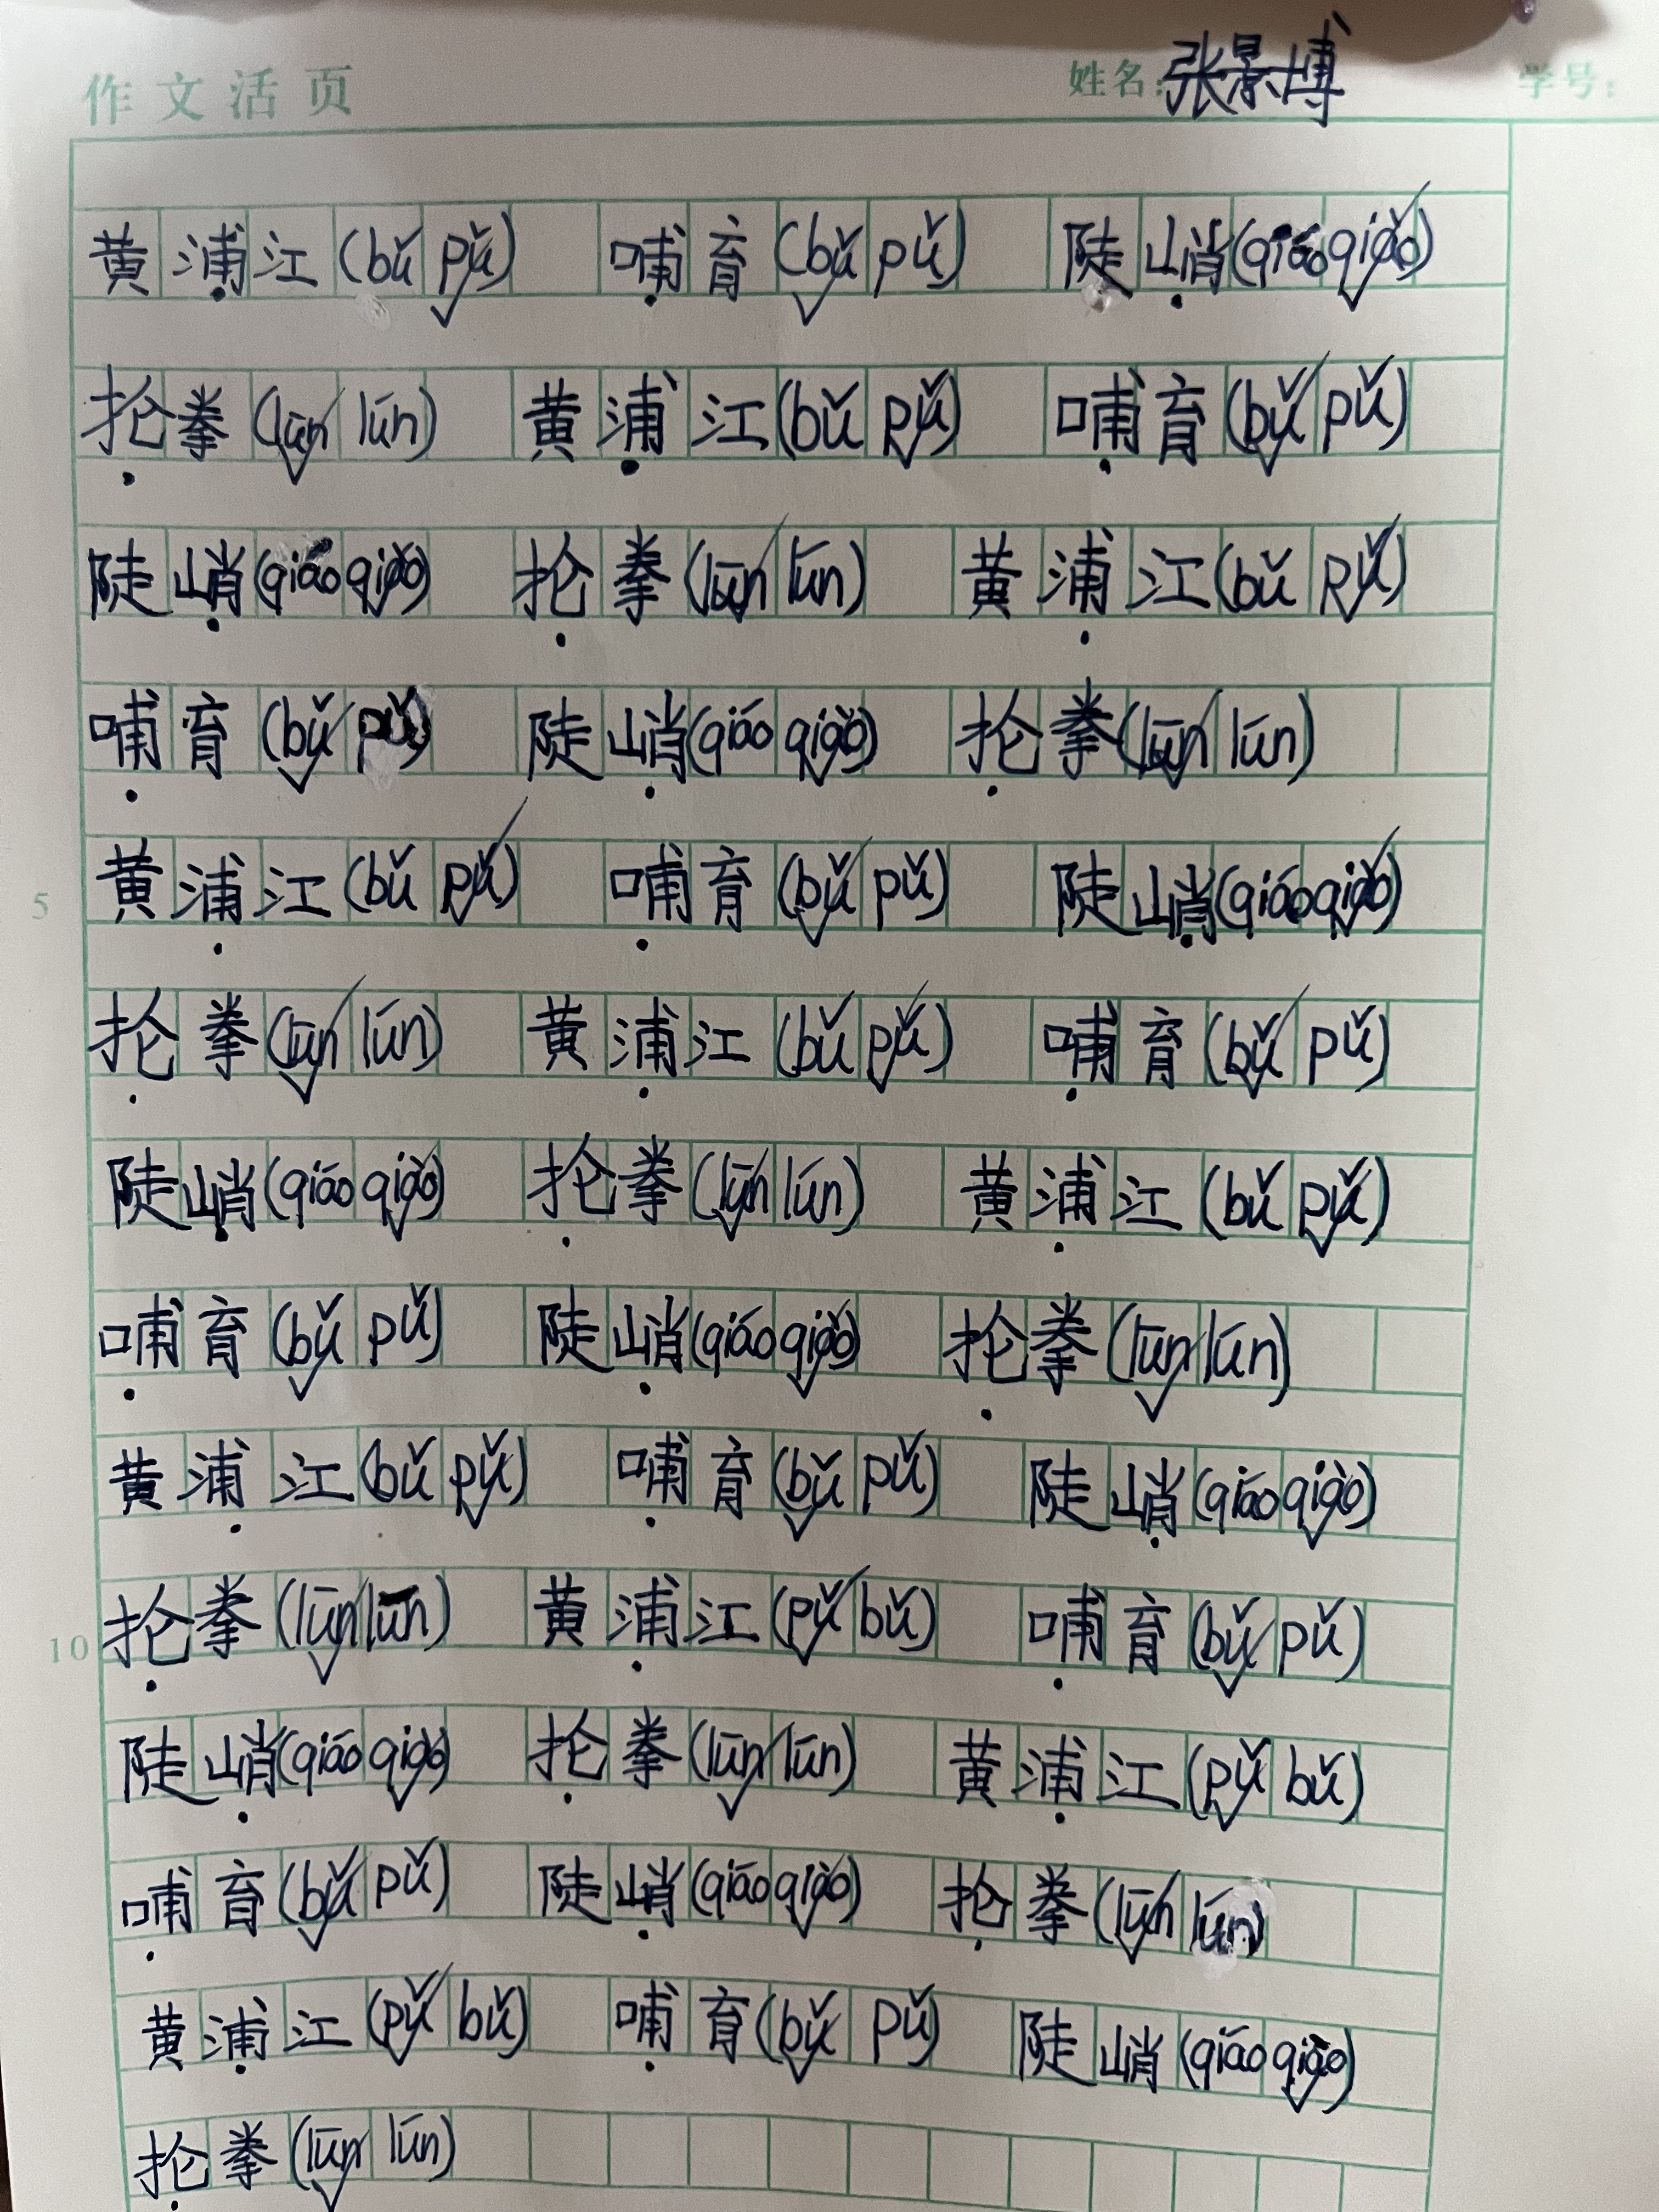 作文活页 姓名:张景博 学号:
黄浦江(bǔ pǔ) 哺育(bǔ pǔ) 陡峭(qiáo qiào)
抡拳(lūn lún) 黄浦江(bǔ pǔ) 哺育(bǔ pǔ)
陡峭(qiáo qiào) 抡拳(lūn lún) 黄浦江(bǔ pǔ)
哺育(bǔ pǔ) 陡峭(qiáo qiào) 抡拳(lūn lún)
5 黄浦江(bǔ pǔ) 哺育(bǔ pǔ) 陡峭(qiáo qiào)
抡拳(lūn lún) 黄浦江(bǔ pǔ) 哺育(bǔ pǔ)
陡峭(qiáo qiào) 抡拳(lūn lún) 黄浦江(bǔ pǔ)
哺育(bǔ pǔ) 陡峭(qiáo qiào) 抡拳(lūn lún)
黄浦江(bǔ pǔ) 哺育(bǔ pǔ) 陡峭(qiáo qiào)
10 抡拳(lūn lūn) 黄浦江(pǔ bǔ) 哺育(bǔ pǔ)
陡峭(qiáo qiào) 抡拳(lūn lún) 黄浦江(pǔ bǔ)
哺育(bǔ pǔ) 陡峭(qiáo qiào) 抡拳(lūn lún)
黄浦江(pǔ bǔ) 哺育(bǔ pǔ) 陡峭(qiáo qiào)
抡拳(lūn lún)